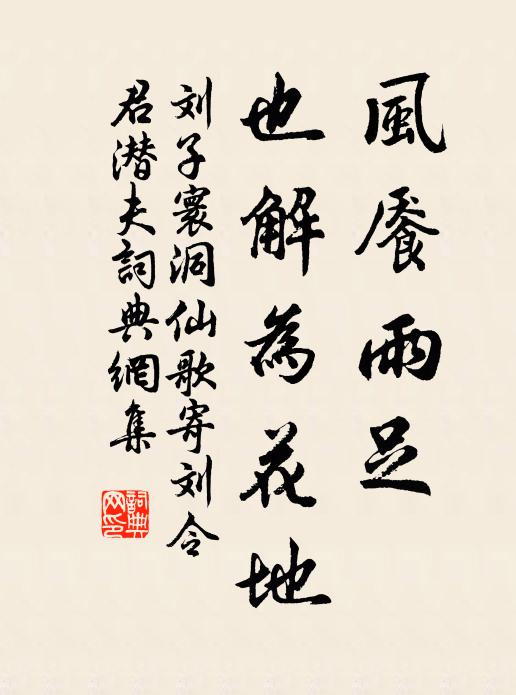 風饜雨足
也解為花地
刘子寰洞仙歌寄刘令
君潜夫詞典網集
詞典
网印